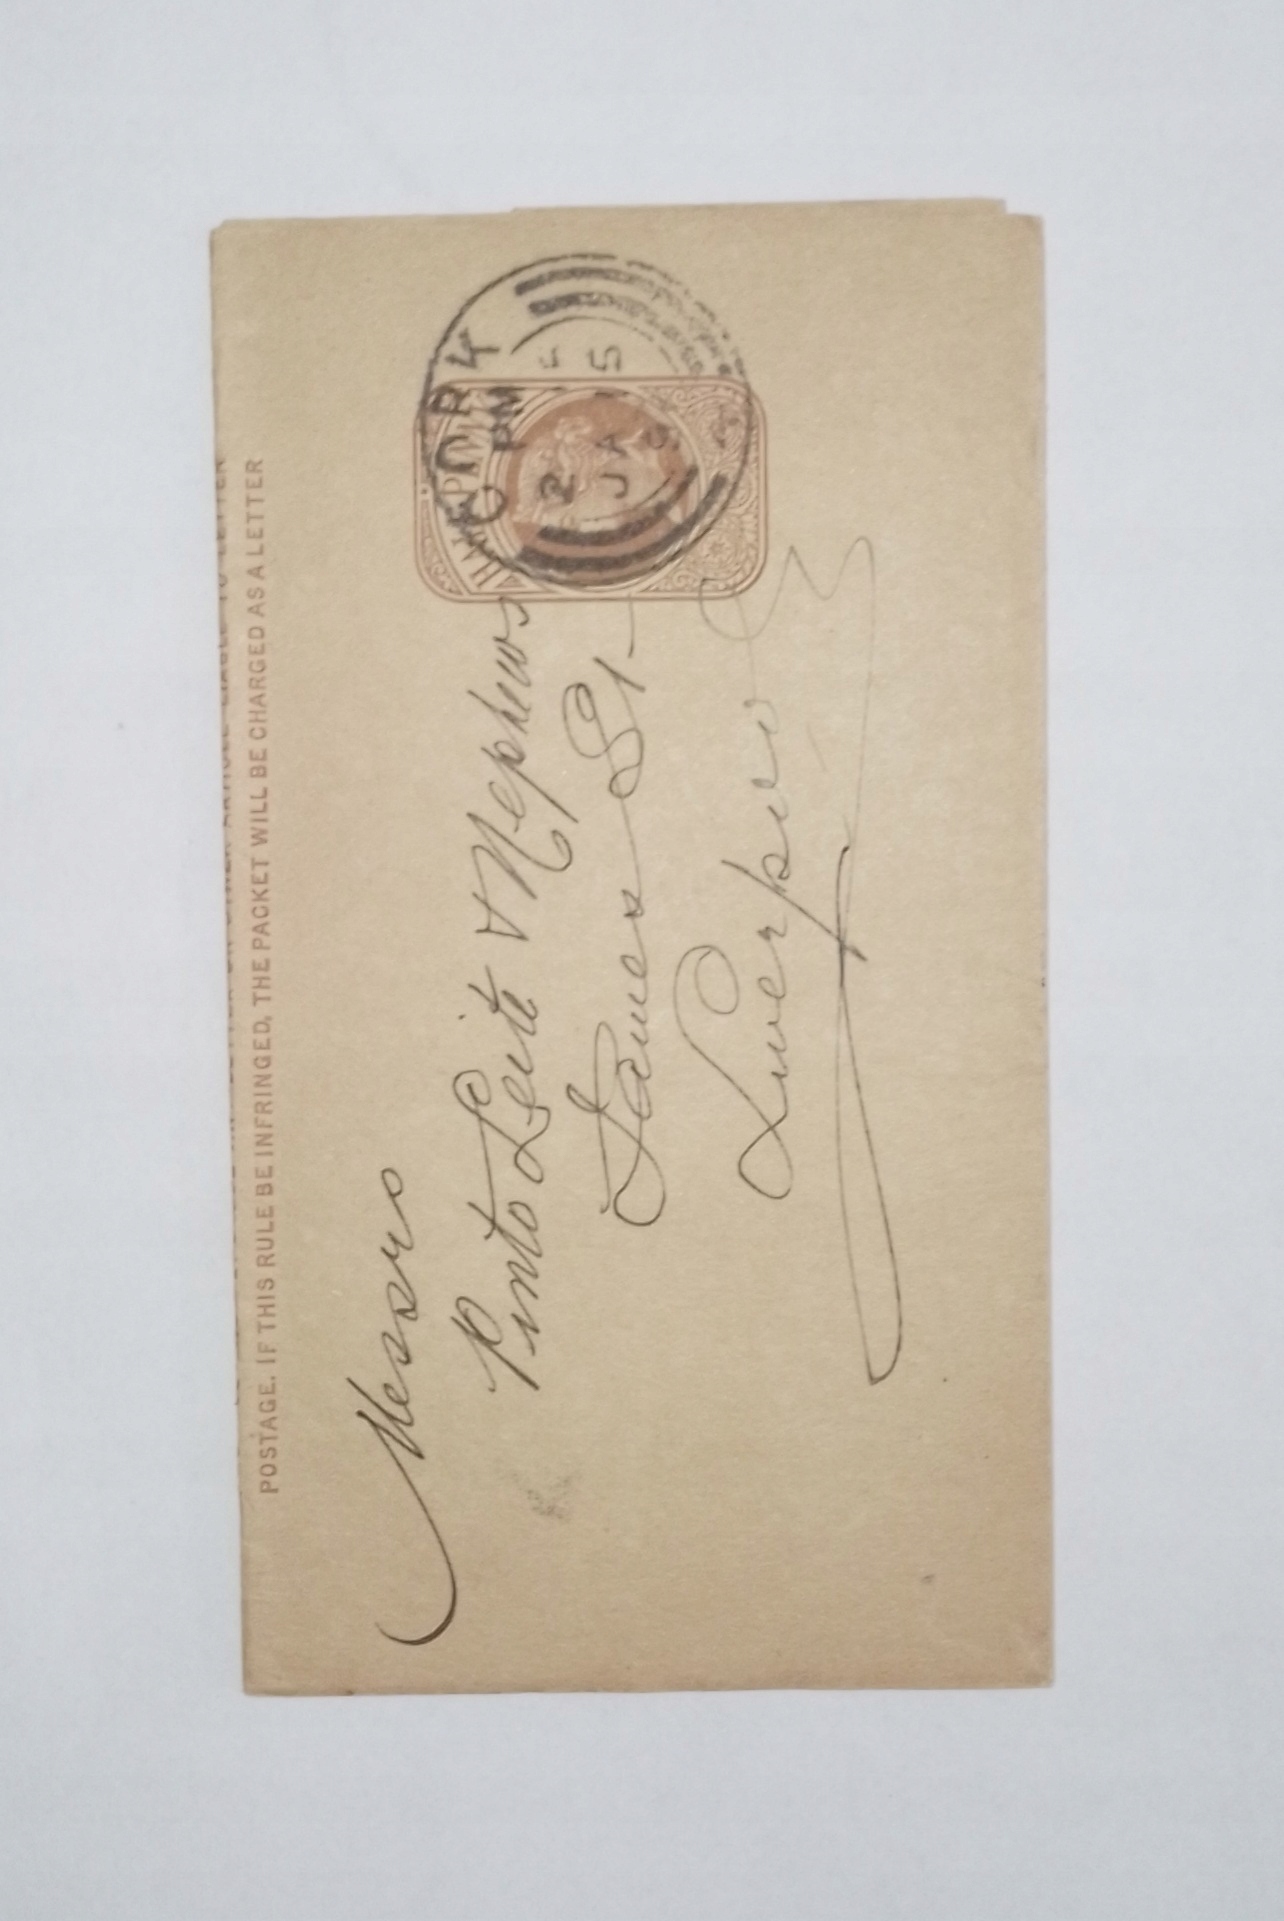 POSTAGE. IF THIS RULE BE INFRINGED, THE PACKET WILL BE CHARGED AS A LETTER
HALFPENNY
CORK
PM
2
JA 5
9
Messrs
Pinto Leite & Nephews
James St
Liverpool